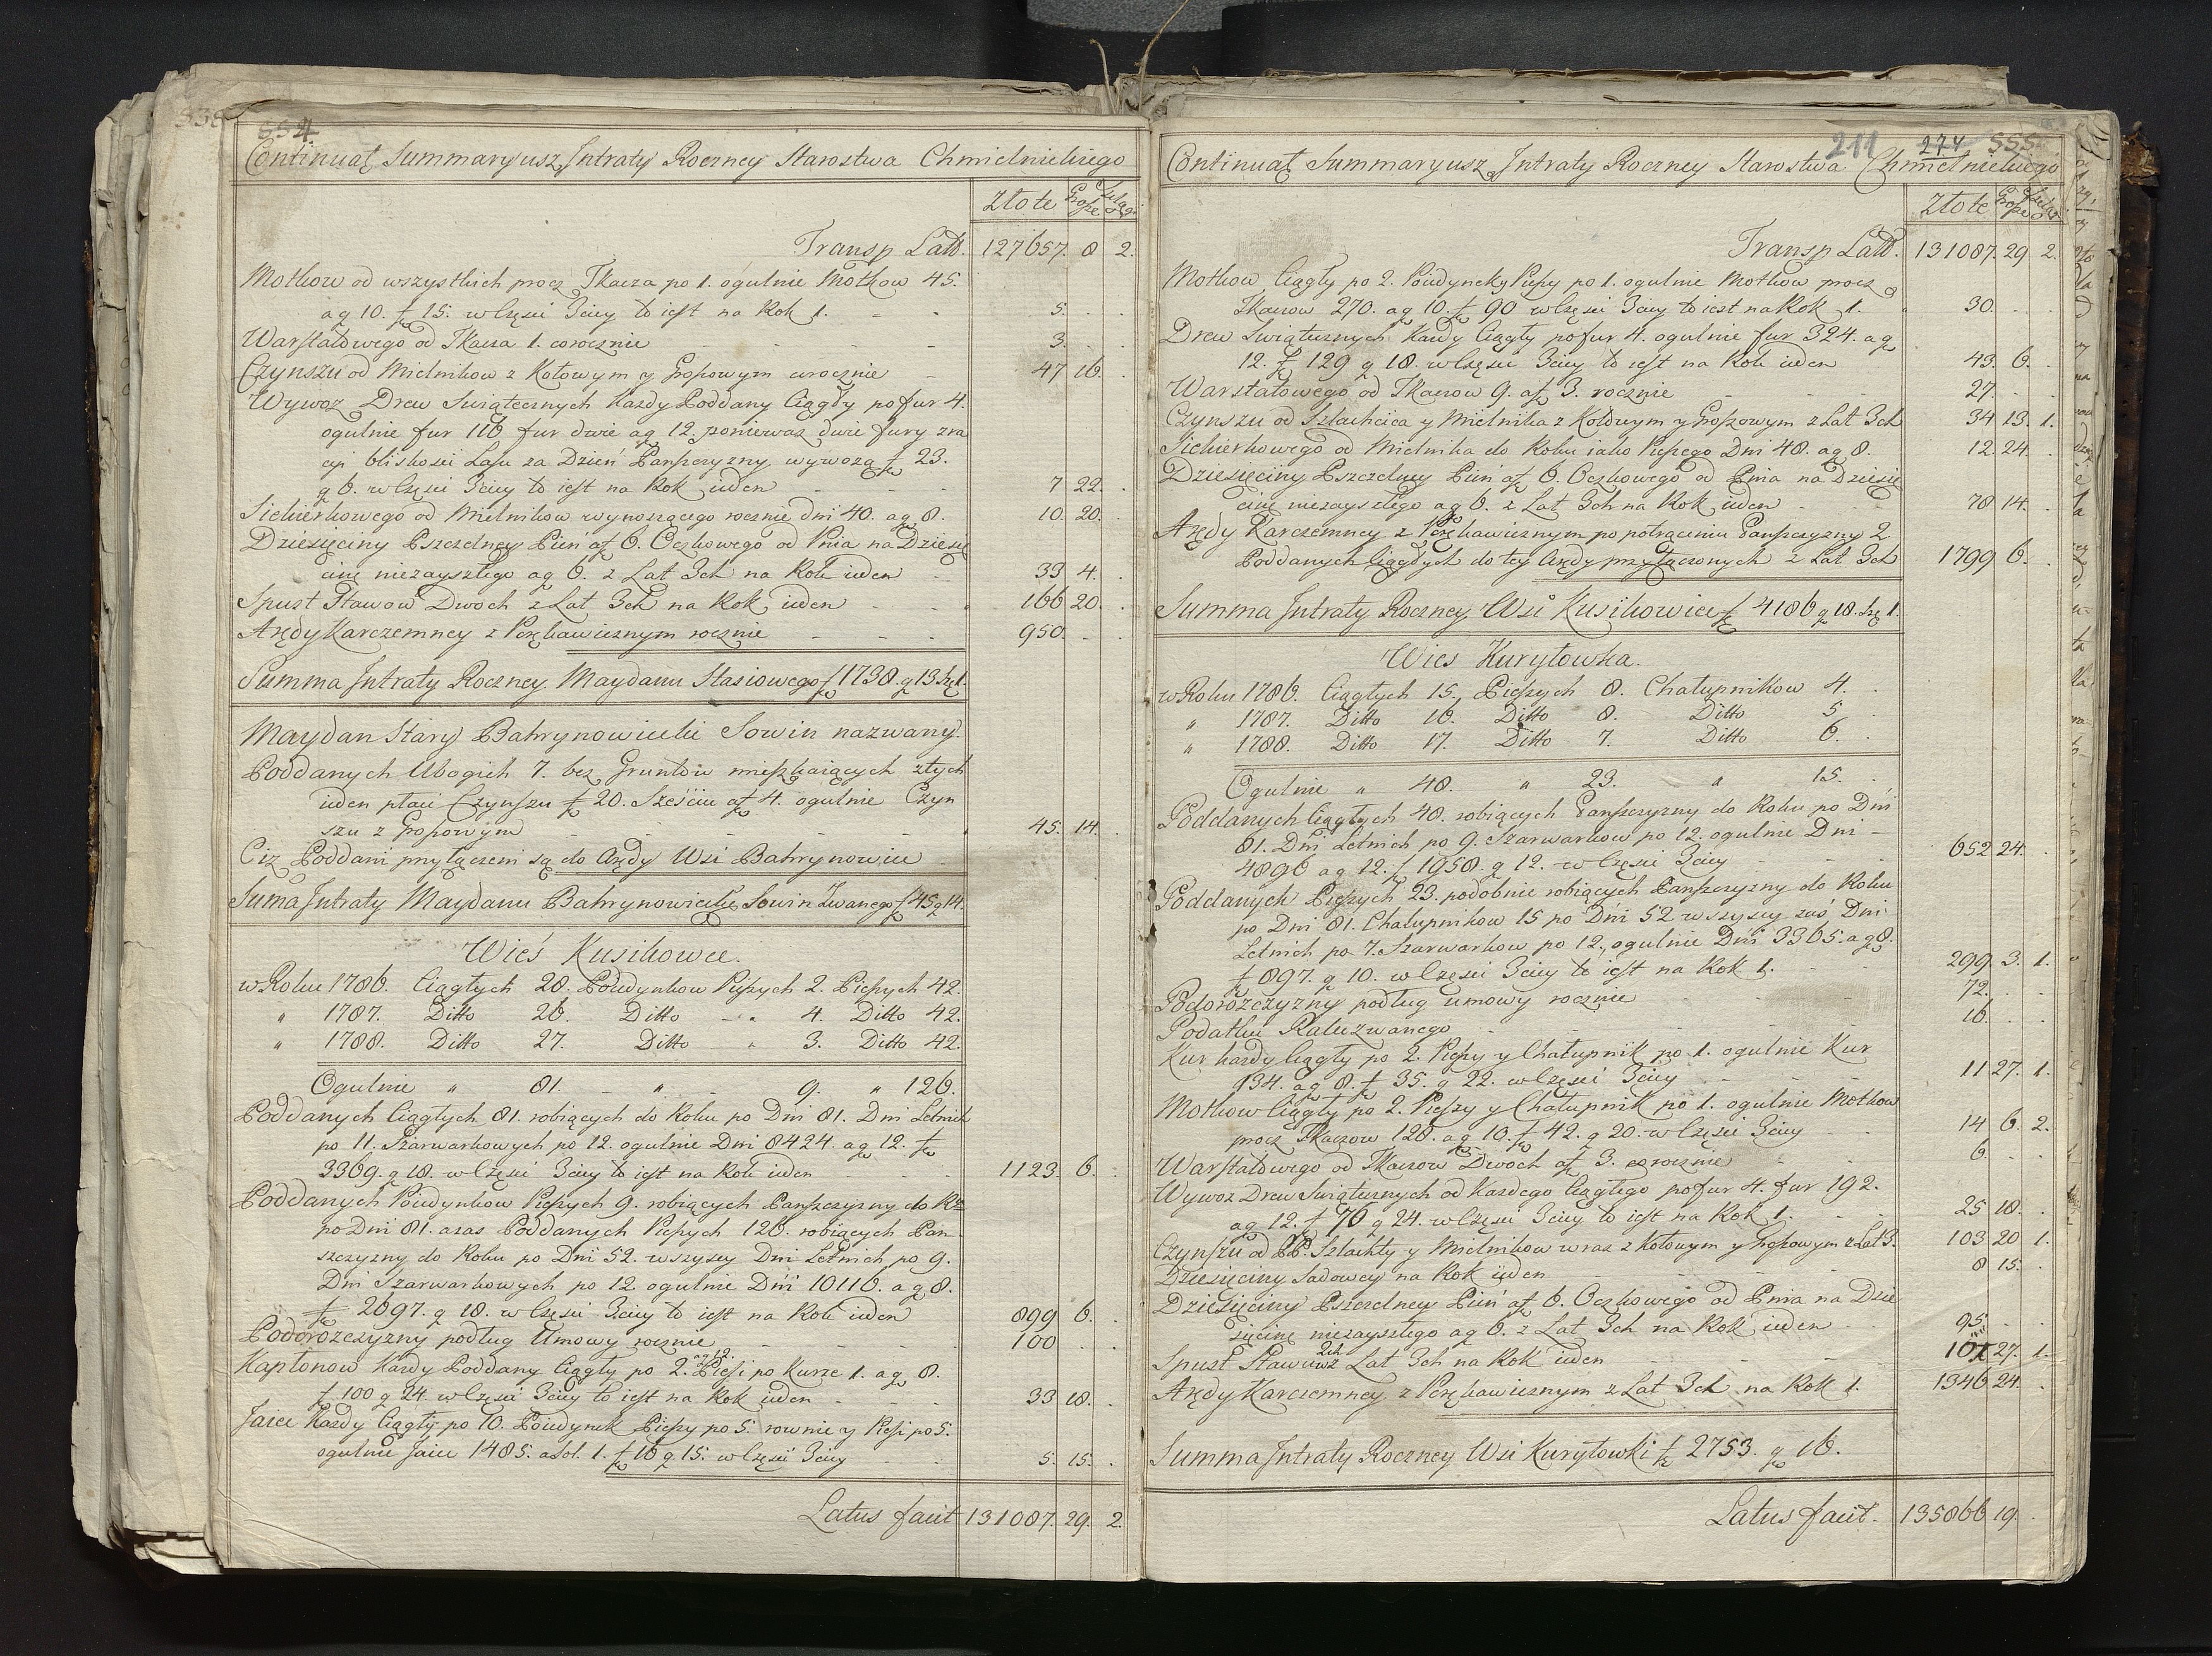 554.
Continuat Summaryusz Jntraty Roczney Starostwa Chmielnickiego
Złote Grosze Szelągi
Transp Latd. 127657. 8 2.
Motkow od wszystkich procz Tkacza po 1. ogulnie Motkow 45.
a g 10. f 15. w Częsci 3ciey to iest na Rok 1. - - 5. . .
Warstatowego od Tkacza 1. corocznie - - - 3. . .
Czynszu od Mielnikow z Kotowym y Groszowym corocznie - 47 16. .
Wywoz Drew Swiątecznych Kazdy Poddany Ciągły po fur 4.
ogulnie fur 116 fur dwie a g 12 poniewaz dwie fury zra
cyi bliskosci Lasu za Dzień Panszczyzny wywozą f 23.
g 6. w Częsci 3ciey to iest na Rok ieden - - - 7 22. .
Siekierkowego od Mielnikow wynoszącego rocznie dni 40. a g 8. 10. 20. .
Dziesięciny Pszczelney Pień af 6. Oczkowego od Pnia na Dziesię
cinę niezayszłego a g 6. z Lat 3ch na Rok ieden - 33 4. .
Spust Stawow Dwoch z Lat 3ch na Rok ieden - - 166 20. .
Arędy Karczemney z Perękawicznym rocznie - - - 950. - .
Summa Jntraty Roczney Maydanu Stasiowego f 1738. g 13 Szę 1.
Maydan Stary Bahrynowiecki Sowin nazwany.
Poddanych Ubogich 7. bez Gruntow mieszkaiących z tych
ieden płaci Czynszu f 20. Szesciu af 4. ogulnie Czyn
szu z Groszowym - - - - - 45. 14. .
Ciz Poddani przyłączeni są do Arędy Wsi Bahrynowiec -
Suma Jntraty Maydanu Bahrynowieckie Sowin Zwanego f 45 g 14.
Wieś Kusikowce.
w Roku 1786. Ciągłych 28. Poiedynkow Pieszych 2. Pieszych 42.
" 1787. Ditto 26. Ditto - " 4. Ditto 42.
" 1788. Ditto 27. Ditto " 3. Ditto 42.
Ogulnie " 81. - " - 9. " 126.
Poddanych Ciągłych 81. robiących do Roku po Dni 81. Dni Letnich
po 11. Szarwarkowych po 12. ogulnie Dni 8424. a g 12. f
3369. g 18. w Częsci 3ciey to iest na Rok ieden - - 1123. 6. .
Poddanych Poiedynkow Pieszych 9. robiących Panszczyzny do Rok
po Dni 81. a zas Poddanych Pieszych 126. robiących Pan
szczyzny do Roku po Dni 52. wszyscy Dni Letnich po 9.
Dni Szarwarkowych po 12 ogulnie Dni 10116. a g 8.
f 2697. g 18. w Częsci 3ciey to iest na Rok ieden 899 6. .
Podorozczyzny podług Umowy rocznie - - - - 100 . .
Kapłonow Kazdy Poddany Ciągły po 2. a g 12. Piesi po Kurze 1. a g 8.
f 100 g 24. w Częsci 3ciey to iest na Rok ieden - - - 33 18. .
Jaiec Kazdy Ciągły po 10. Poiedynek Pieszy po 5. rownie y Piesi po 5.
ogulnie Jaiec 1485. a Sol. 1. f 16 g 15. w Częsci 3ciey - - 5. 15. .
Latus facit 131087. 29. 2.
211 277 555
Continuat Summaryusz Jntraty Roczney Starostwa Chmielnickiego
Złote Grosze Szelągi
Transp Latd. 131087. 29. 2.
Motkow Ciągły po 2. Poiedynek y Pieszy po 1. ogulnie Motkow procz
Tkaczow 270. a g 10. f 90 w Częsci 3ciey to iest na Rok 1. 30. . .
Drew Swiątecznych Kazdy Ciągły po fur 4. ogulnie fur 324. a g
12. f 129 g 18. w Częsci 3ciey to iest na Rok ieden 43. 6. .
Warstatowego od Tkaczow 9. af 3. rocznie - - - 27. - .
Czynszu od Szlachcica y Mielnika z Kotowym y Groszowym z Lat 3ch 34 13. 1.
Siekierkowego od Mielnika do Roku iako Pieszego Dni 48. a g 8. 12. 24. .
Dziesięciny Pszczelney Pień af 6. Oczkowego od Pnia na Dziesię
cinę niezayszłego a g 6. z Lat 3ch na Rok ieden - - 78 14. .
Arędy Karczemney z Perękawicznym po potrąceniu Panszczyzny 2.
Poddanych Ciągłych do tey Arędy przyłączonych z Lat 3ch 1799 6. .
Summa Jntraty Roczney Wsi Kusikowiec f 4186 g 18. Szę 1.
Wies Kuryłowka.
w Roku 1786. Ciągłych 15. Pieszych 8. Chałupnikow 4. .
" 1787. Ditto 16. Ditto 8. Ditto 5 .
" 1788. Ditto 17. Ditto 7. Ditto 6. .
Ogulnie " 48. " 23. " 15. .
Poddanych Ciągłych 48. robiących Panszczyzny do Roku po Dni
81. Dni Letnich po 9. Szarwarkow po 12. ogulnie Dni -
4896 a g 12. f 1958. g 12. w Częsci 3ciey - - - 652 24. .
Poddanych Pieszych 23. podobnie robiących Panszczyzny do Roku
po Dni 81. Chałupnikow 15 po Dni 52 wszyscy zaś Dni
Letnich po 7. Szarwarkow po 12. ogulnie Dni 3365. a g 8.
f 897. g 10. w Częsci 3ciey to iest na Rok 1. - - 299. 3. 1.
Podorozczyzny podług umowy rocznie - - - 72. . .
Podatku Raluzwanego - - - - - 16. . .
Kur kazdy Ciągły po 2. Pieszy y Chałupnik po 1. ogulnie Kur
134. a g 8. f 35. g 22. w Częsci 3ciey - - - 11 27. 1.
Motkow Ciągły po 2. Pieszy y Chałupnik po 1. ogulnie Motkow
procz Tkaczow 128. a g 10. f 42. g 20. w Częsci 3ciey - - 14 6. 2.
Warstatowego od Tkaczow Dwoch af 3. corocznie - - 6. - .
Wywoz Drew Swiątecznych od Kazdego Ciągłego po fur 4. fur 192.
a g 12. f 76 g 24. w Częsci 3ciey to iest na Rok 1. - - 25 18. .
Czynszu od PP. Szlachty y Mielnikow wraz z Kotowym y Groszowym z Lat 3. 103 20 1.
Dziesięciny Sadowey na Rok ieden - - - - 8 15. .
Dziesięciny Pszczelney Pień af 6. Oczkowego od Pnia na Dzie
sięcinę niezayszłego a g 6. z Lat 3ch na Rok ieden - 95. . .
Spust Stawow 2ch z Lat 3ch na Rok ieden - - - 101 27. 1.
Arędy Karczemney z Perękawicznym z Lat 3ch na Rok 1. 1346 24. .
Summa Jntraty Roczney Wsi Kuryłowki f 2753. g 16.
Latus facit. 135866 19. .